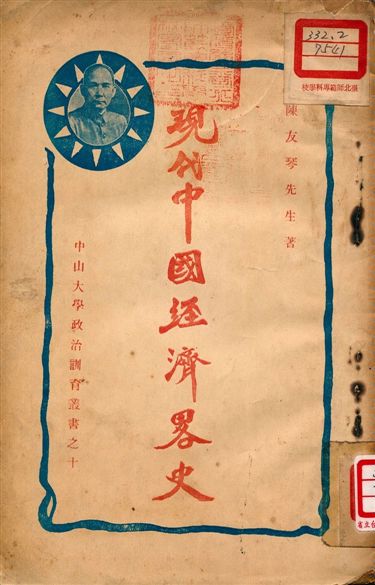 332.2
7541
臺北師範專科學校
陳友琴先生著
現代中國經濟畧史
中山大學政治訓育叢書之十